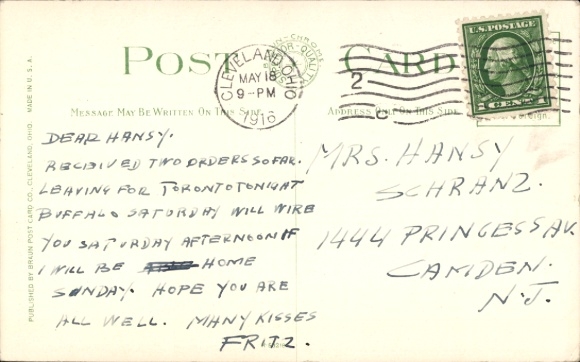 POST CARD
CLEVELAND, OHIO
MAY 18
9-PM
1916
2
C
U.S. POSTAGE
1 CENT 1
MESSAGE MAY BE WRITTEN ON THIS SIDE
ADDRESS ONLY ON THIS SIDE
PUBLISHED BY BRAUN POST CARD CO., CLEVELAND, OHIO. MADE IN U.S.A.
DEAR HANSY.
RECEIVED TWO ORDERS SO FAR.
LEAVING FOR TORONTO TONIGHT
BUFFALO SATURDAY WILL WIRE
YOU SATURDAY AFTERNOON IF
I WILL BE HOME
SUNDAY. HOPE YOU ARE
ALL WELL. MANY KISSES
FRITZ.
MRS. HANSY
SCHRANZ.
1444 PRINCESS AV.
CAMDEN.
N.J.